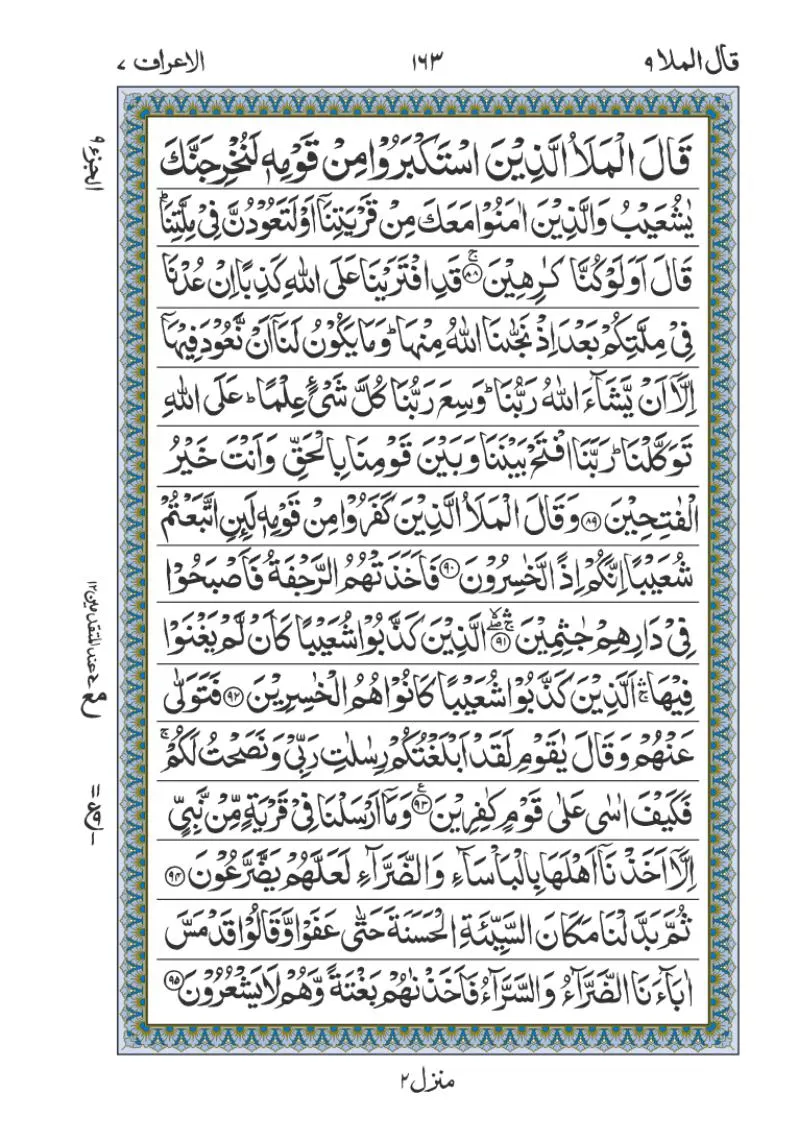 قال الملا ۹
۱۶۳
الاعراف ۷
الجزء ۹
قَالَ الْمَلَاُ الَّذِيْنَ اسْتَكْبَرُوْا مِنْ قَوْمِهٖ لَنُخْرِجَنَّكَ
يٰشُعَيْبُ وَالَّذِيْنَ اٰمَنُوْا مَعَكَ مِنْ قَرْيَتِنَاۤ اَوْ لَتَعُوْدُنَّ فِيْ مِلَّتِنَاؕ
قَالَ اَوَلَوْ كُنَّا كٰرِهِيْنَۚ ﴿۸۸﴾ قَدِ افْتَرَيْنَا عَلَى اللّٰهِ كَذِبًا اِنْ عُدْنَا
فِيْ مِلَّتِكُمْ بَعْدَ اِذْ نَجّٰىنَا اللّٰهُ مِنْهَاؕ وَمَا يَكُوْنُ لَنَاۤ اَنْ نَّعُوْدَ فِيْهَاۤ
اِلَّاۤ اَنْ يَّشَآءَ اللّٰهُ رَبُّنَاؕ وَسِعَ رَبُّنَا كُلَّ شَيْءٍ عِلْمًاؕ عَلَى اللّٰهِ
تَوَكَّلْنَاؕ رَبَّنَا افْتَحْ بَيْنَنَا وَبَيْنَ قَوْمِنَا بِالْحَقِّ وَاَنْتَ خَيْرُ
الْفٰتِحِيْنَ ﴿۸۹﴾ وَقَالَ الْمَلَاُ الَّذِيْنَ كَفَرُوْا مِنْ قَوْمِهٖ لَىِٕنِ اتَّبَعْتُمْ
شُعَيْبًا اِنَّكُمْ اِذًا لَّخٰسِرُوْنَ ﴿۹۰﴾ فَاَخَذَتْهُمُ الرَّجْفَةُ فَاَصْبَحُوْا
فِيْ دَارِهِمْ جٰثِمِيْنَ ﴿۹۱﴾ۚۖۛ الَّذِيْنَ كَذَّبُوْا شُعَيْبًا كَاَنْ لَّمْ يَغْنَوْا
فِيْهَاۚۛ اَلَّذِيْنَ كَذَّبُوْا شُعَيْبًا كَانُوْا هُمُ الْخٰسِرِيْنَ ﴿۹۲﴾ فَتَوَلّٰى
عَنْهُمْ وَقَالَ يٰقَوْمِ لَقَدْ اَبْلَغْتُكُمْ رِسٰلٰتِ رَبِّيْ وَنَصَحْتُ لَكُمْۚ
فَكَيْفَ اٰسٰى عَلٰى قَوْمٍ كٰفِرِيْنَ ﴿۹۳﴾ؑ وَمَاۤ اَرْسَلْنَا فِيْ قَرْيَةٍ مِّنْ نَّبِيٍّ
اِلَّاۤ اَخَذْنَاۤ اَهْلَهَا بِالْبَاْسَآءِ وَالضَّرَّآءِ لَعَلَّهُمْ يَضَّرَّعُوْنَ ﴿۹۴﴾
ثُمَّ بَدَّلْنَا مَكَانَ السَّيِّئَةِ الْحَسَنَةَ حَتّٰى عَفَوْا وَّقَالُوْا قَدْ مَسَّ
اٰبَآءَنَا الضَّرَّآءُ وَالسَّرَّآءُ فَاَخَذْنٰهُمْ بَغْتَةً وَّهُمْ لَا يَشْعُرُوْنَ ﴿۹۵﴾
منزل ۲